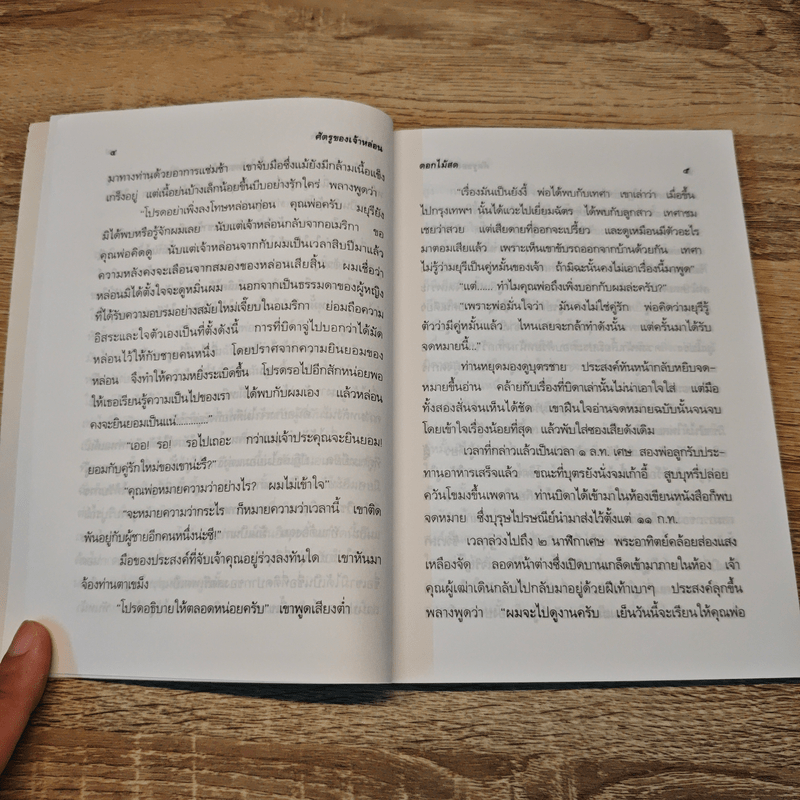 ๔
ศัตรูของเจ้าหล่อน
มาทางท่านด้วยอาการแช่มช้า เขาจับมือซึ่งแม้ยังมีกล้ามเนื้อแข็ง
เกร็งอยู่ แต่เนื้อย่นบ้างเล็กน้อยขึ้นบีบอย่างรักใคร่ พลางพูดว่า
“โปรดอย่าเพิ่งลงโทษหล่อนก่อน คุณพ่อครับ มยุรียัง
มิได้พบหรือรู้จักผมเลย นับแต่เจ้าหล่อนกลับจากอเมริกา ขอ
คุณพ่อคิดดู นับแต่เจ้าหล่อนจากกับผมเป็นเวลาสิบปีมาแล้ว
ความหลังคงจะเลือนจากสมองของหล่อนเสียสิ้น ผมเชื่อว่า
หล่อนมิได้ตั้งใจจะดูหมิ่นผม นอกจากเป็นธรรมดาของผู้หญิง
ที่ได้รับความอบรมอย่างสมัยใหม่เจี๊ยบในอเมริกา ย่อมถือความ
อิสระและใจตัวเองเป็นที่ตั้งดังนี้ การที่บิดาจู่ไปบอกว่าได้มัด
หล่อนไว้ให้กับชายคนหนึ่ง โดยปราศจากความยินยอมของ
หล่อน จึงทำให้ความหยิ่งระเบิดขึ้น โปรดรอไปอีกสักหน่อยพอ
ให้เธอเรียนรู้ความเป็นไปของเรา ได้พบกับผมเอง แล้วหล่อน
คงจะยินยอมเป็นแน่............”
“เออ! รอ! รอไปเถอะ กว่าแม่เจ้าประคุณจะยินยอม!
ยอมกับคู่รักใหม่ของเขาน่ะรึ?”
“คุณพ่อหมายความว่าอย่างไร? ผมไม่เข้าใจ”
“จะหมายความว่ากระไร ก็หมายความว่าเวลานี้ เขาติด
พันอยู่กับผู้ชายอีกคนหนึ่งน่ะซี!”
มือของประสงค์ที่จับเจ้าคุณอยู่ร่วงลงทันใด เขาหันมา
จ้องท่านตาเขม็ง
“โปรดอธิบายให้ตลอดหน่อยครับ” เขาพูดเสียงต่ำ
ดอกไม้สด
๕
“เรื่องมันเป็นยังงี้ พ่อได้พบกับเทศา เขาเล่าว่า เมื่อขึ้น
ไปกรุงเทพฯ นั้นได้แวะไปเยี่ยมฉัตร ได้พบกับลูกสาว เทศาชม
เชยว่าสวย แต่เสียดายที่ออกจะเปรี้ยว และดูเหมือนมีตัวอะไร
มาตอมเสียแล้ว เพราะเห็นเขาขับรถออกจากบ้านด้วยกัน เทศา
ไม่รู้ว่ามยุรีเป็นคู่หมั้นของเจ้า ถ้ามิฉะนั้นคงไม่เอาเรื่องนี้มาพูด”
“แต่...... ทำไมคุณพ่อถึงเพิ่งบอกกับผมล่ะครับ?”
“เพราะพ่อมั่นใจว่า มันคงไม่ใช่คู่รัก พ่อคิดว่ามยุรีรู้
ตัวว่ามีคู่หมั้นแล้ว ไหนเลยจะกล้าทำดังนั้น แต่ครั้นมาได้รับ
จดหมายนี้...”
ท่านหยุดมองดูบุตรชาย ประสงค์หันหน้ากลับหยิบจด-
หมายขึ้นอ่าน คล้ายกับเรื่องที่บิดาเล่านั้นไม่น่าเอาใจใส่ แต่มือ
ทั้งสองสั่นจนเห็นได้ชัด เขาฝืนใจอ่านจดหมายฉบับนั้นจนจบ
โดยเข้าใจเรื่องน้อยที่สุด แล้วพับใส่ซองเสียดังเดิม
เวลาที่กล่าวแล้วเป็นเวลา ๑ ล.ท. เศษ สองพ่อลูกรับประ-
ทานอาหารเสร็จแล้ว ขณะที่บุตรยังนั่งจมเก้าอี้ สูบบุหรี่ปล่อย
ควันโขมงขึ้นเพดาน ท่านบิดาได้เข้ามาในห้องเขียนหนังสือก็พบ
จดหมาย ซึ่งบุรุษไปรษณีย์นำมาส่งไว้ตั้งแต่ ๑๑ ก.ท.
เวลาล่วงไปถึง ๒ นาฬิกาเศษ พระอาทิตย์คล้อยส่องแสง
เหลืองจัด ลอดหน้าต่างซึ่งเปิดบานเกล็ดเข้ามาภายในห้อง เจ้า
คุณผู้เฒ่าเดินกลับไปกลับมาอยู่ด้วยฝีเท้าเบาๆ ประสงค์ลุกขึ้น
พลางพูดว่า “ผมจะไปดูงานครับ เย็นวันนี้จะเรียนให้คุณพ่อ